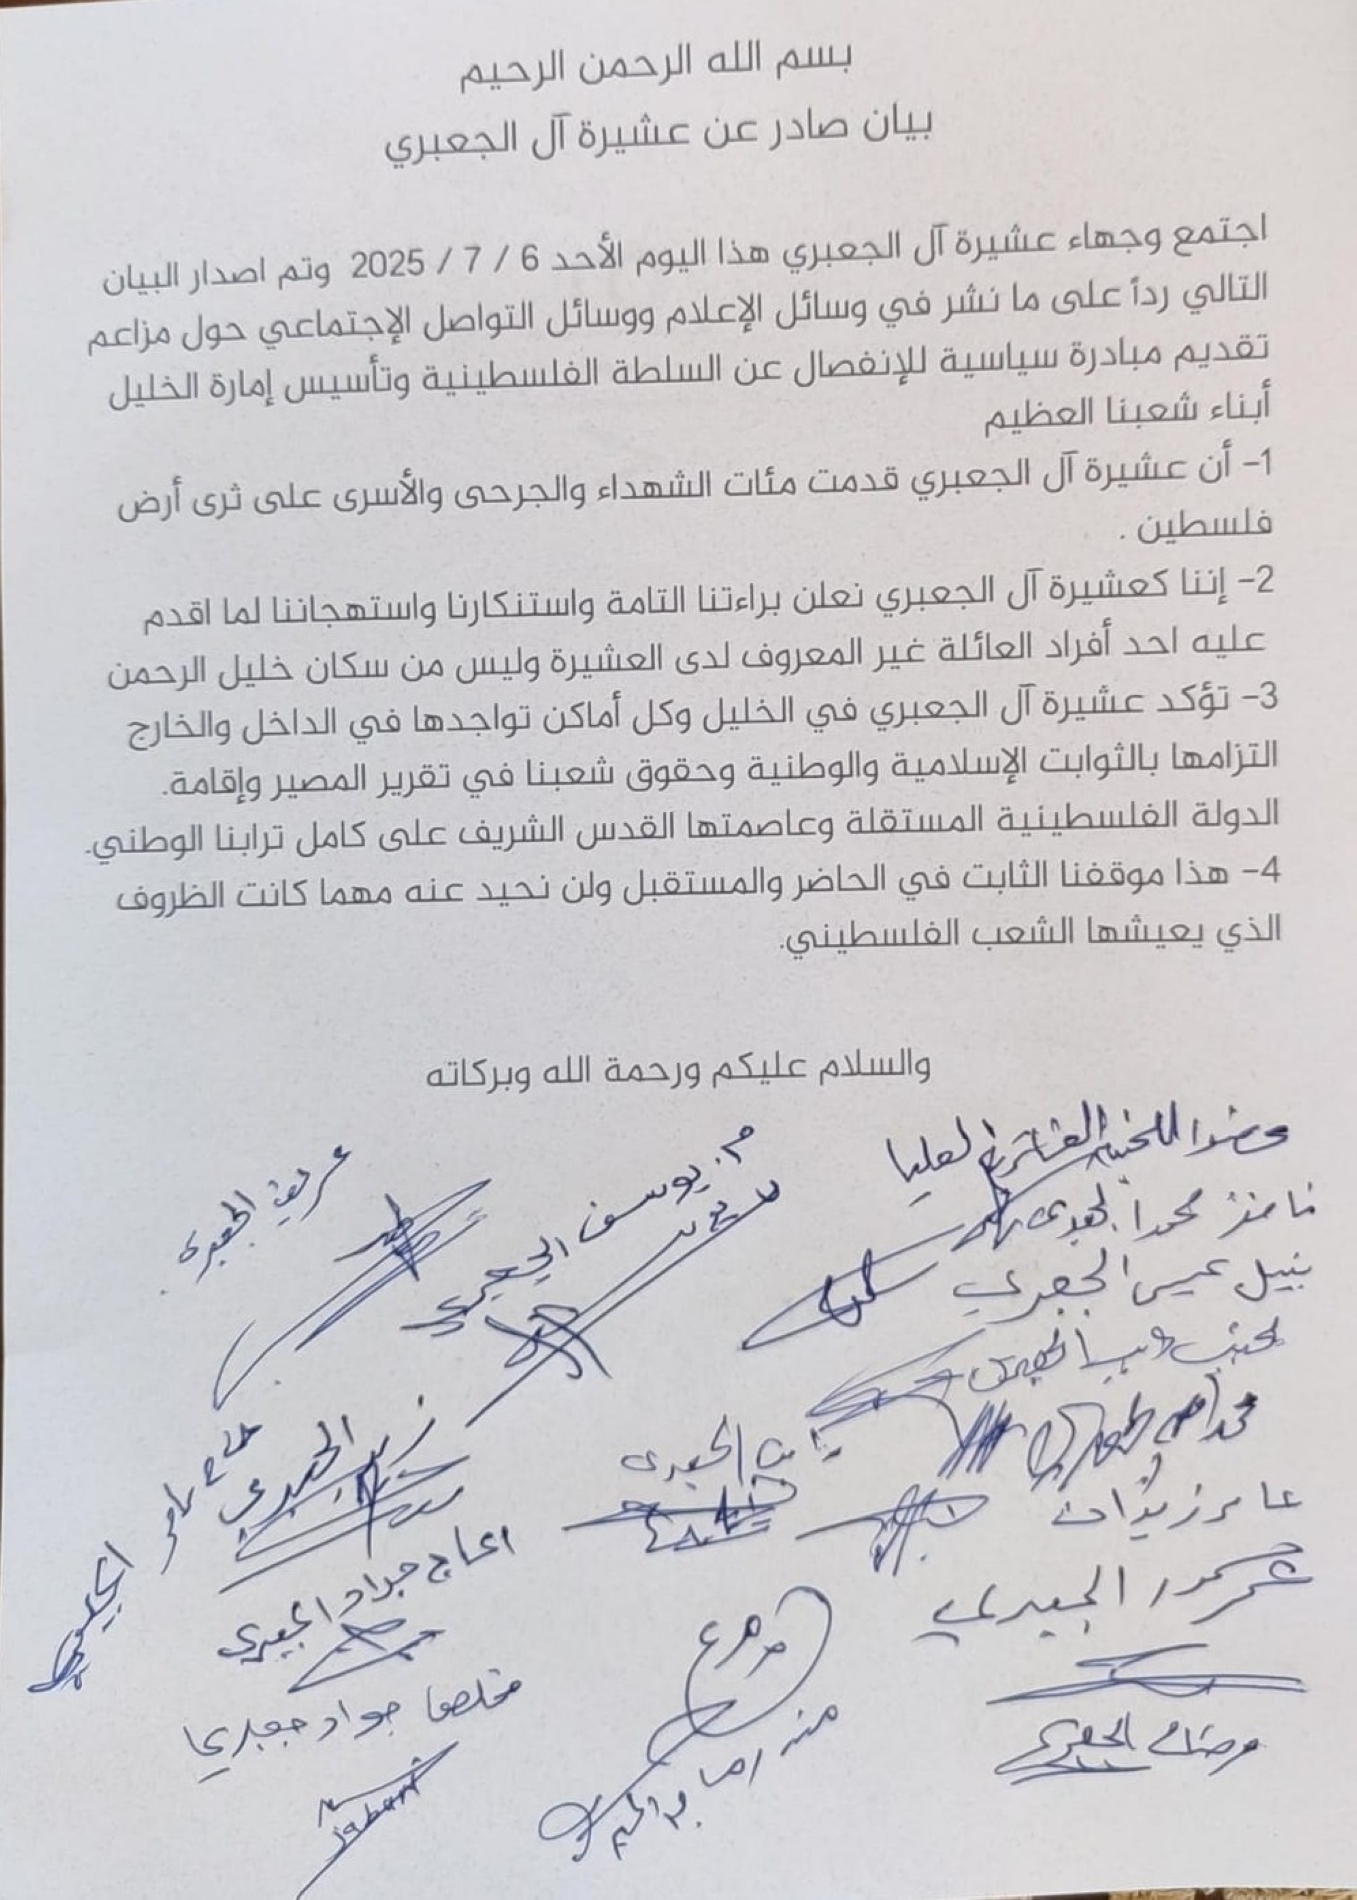 بسم الله الرحمن الرحيم
بيان صادر عن عشيرة آل الجعبري
اجتمع وجهاء عشيرة آل الجعبري هذا اليوم الأحد 6 / 7 / 2025 وتم اصدار البيان
التالي رداً على ما نشر في وسائل الإعلام ووسائل التواصل الإجتماعي حول مزاعم
تقديم مبادرة سياسية للإنفصال عن السلطة الفلسطينية وتأسيس إمارة الخليل
أبناء شعبنا العظيم
1- أن عشيرة آل الجعبري قدمت مئات الشهداء والجرحى والأسرى على ثرى أرض
فلسطين .
2- إننا كعشيرة آل الجعبري نعلن براءتنا التامة واستنكارنا واستهجاننا لما اقدم
عليه احد أفراد العائلة غير المعروف لدى العشيرة وليس من سكان خليل الرحمن
3- تؤكد عشيرة آل الجعبري في الخليل وكل أماكن تواجدها في الداخل والخارج
التزامها بالثوابت الإسلامية والوطنية وحقوق شعبنا في تقرير المصير وإقامة.
الدولة الفلسطينية المستقلة وعاصمتها القدس الشريف على كامل ترابنا الوطني.
4- هذا موقفنا الثابت في الحاضر والمستقبل ولن نحيد عنه مهما كانت الظروف
الذي يعيشها الشعب الفلسطيني.
والسلام عليكم ورحمة الله وبركاته
م. يوسف الجعبري
نبيل عيسى الجعبري
الجعبري
الحاج جواد الجعبري
الجعبري
جواد جعبري
Jabari